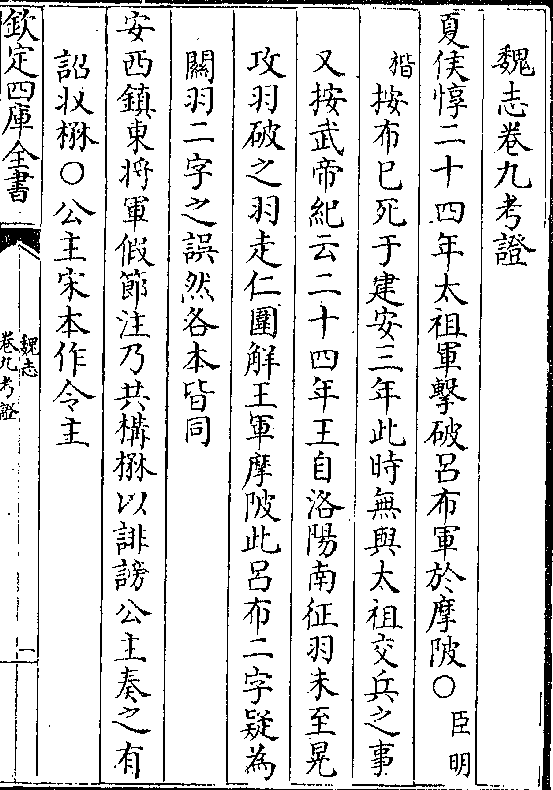 魏志卷九考證
夏侯惇二十四年太祖軍擊破呂布軍於摩陂○臣明
楷按布已死于建安三年此時無與太祖交兵之事
又按武帝紀云二十四年王自洛陽南征羽未至晃
攻羽破之羽走仁圍解王軍摩陂此呂布二字疑為
關羽二字之誤然各本皆同
安西鎮東將軍假節注乃共構楙以誹謗公主奏之有
詔收楙○公主宋本作令主
欽定四庫全書
魏志
卷九考證
一